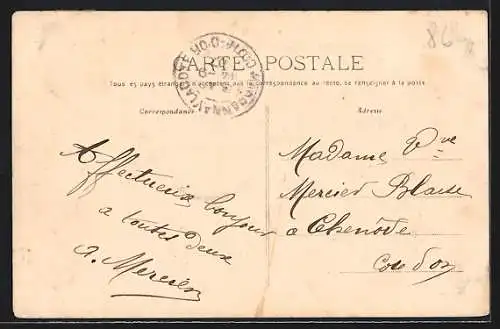 86
CARTE POSTALE
Tous les pays étrangers n'acceptent pas la correspondance au recto, se renseigner à la poste
Correspondance
Adresse
Affectueux bonjour
a toutes deux
A. Mercier
Madame Vve
Mercier Blaise
a Chenôve
Cote d'or